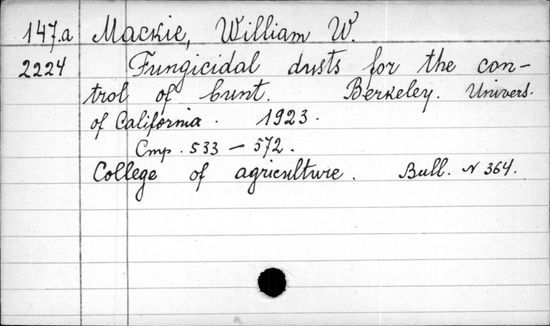 147.a Mackie, William W.
2224 Fungicidal dusts for the con-
trol of bunt. Berkeley. Univers.
of California. 1923.
Стр. 533 – 572.
College of agriculture. Bull. N 364.